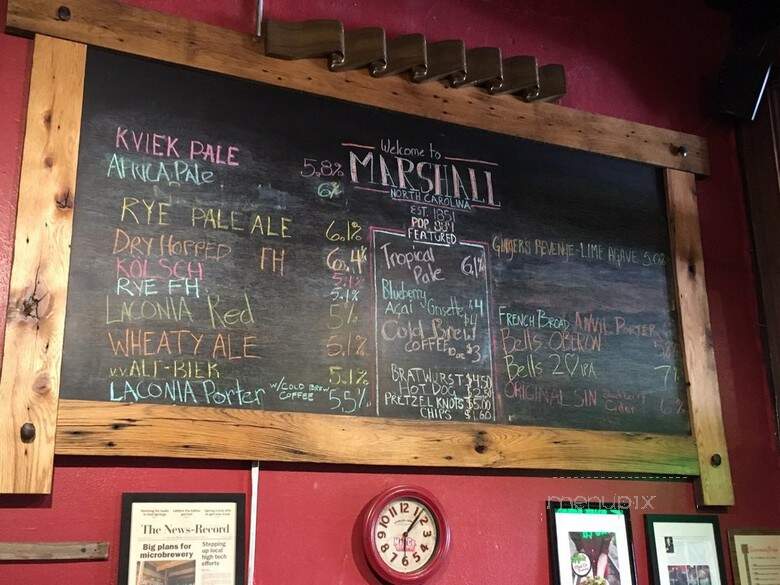 KVIEK PALE 5.8%
AFRICA PALE 6%
RYE PALE ALE 6.1%
DRY HOPPED FH 6.4%
KOLSCH 5.1%
RYE FH 5.1%
LACONIA Red 5%
WHEATY ALE 5.1%
ALT-BIER 5.1%
LACONIA Porter W/COLD BREW COFFEE 5.5%
Welcome to
MARSHALL
NORTH CAROLINA
EST. 1851
POP.
FEATURED
Tropical
Pale 6.1%
Blueberry
Acai Grisette $4
Cold Brew $4
COFFEE 10oz $3
BRATWURST $4.50
HOT DOG
PRETZEL KNOTS $5.00
CHIPS $1.60
GINGERS REVENGE - LIME AGAVE
FRENCH BROAD ANVIL PORTER
Bells OBERON
Bells 2♡IPA 7%
ORIGINAL SIN Cider 6%
The News-Record
Big plans for
microbrewery
Stepping
up local
high tech
efforts
12
1
2
3
4
5
6
7
8
9
10
11
menupix